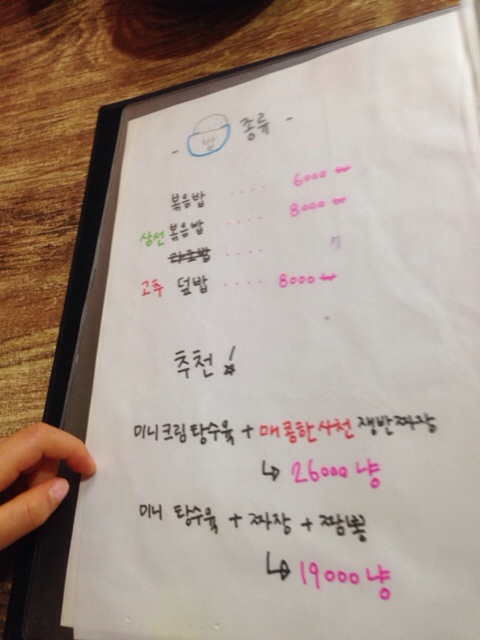 - 밥 종류 -
볶음밥 .... 6000 ₩
삼선 볶음밥 .... 8000 ₩
....
고추 덮밥 .... 8000 ₩
추천!
미니크림탕수육 + 매콤한사천 쟁반짜장
↳ 26000 냥
미니 탕수육 + 짜장 + 짬뽕
↳ 19000 냥